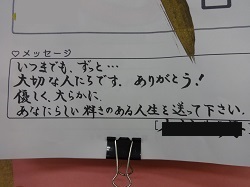 ♡メッセージ
いつまでも、ずっと…
大切な人たちです. ありがとう!
優しく、大らかに、
あなたらしい輝きのある人生を送って下さい.